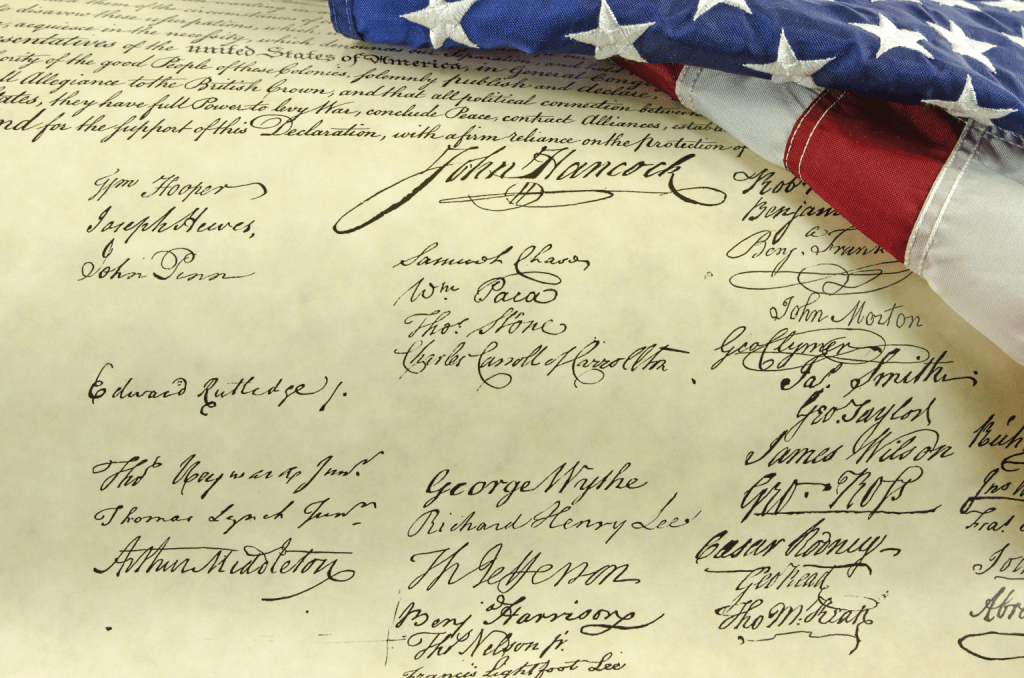 to disavow these usurpations, which
acquiesce in the necessity, which denounces
sentatives of the united States of America, in General Cong
ority of the good People of these Colonies, solemnly publish and declare,
ll Allegiance to the British Crown, and that all political connection between
tates, they have full Power to levy War, conclude Peace, contract Alliances, establ
nd for the support of this Declaration, with a firm reliance on the Protection of
John Hancock
Wm Hooper
Joseph Hewes,
John Penn
Edward Rutledge Jr.
Thos Heyward Junr.
Thomas Lynch Junr.
Arthur Middleton
Samuel Chase
Wm. Paca
Thos. Stone
Charles Carroll of Carrollton
George Wythe
Richard Henry Lee
Th Jefferson
Benj Harrison
Thos Nelson jr.
Francis Lightfoot Lee
Rob
Benjam
Benj. Frank
John Morton
Geo Clymer
Jas. Smith.
Geo. Taylor
James Wilson
Geo. Ross
Caesar Rodney
Geo Read
Tho M:Kean
Rich
Jos
Fras.
Joh
Abra